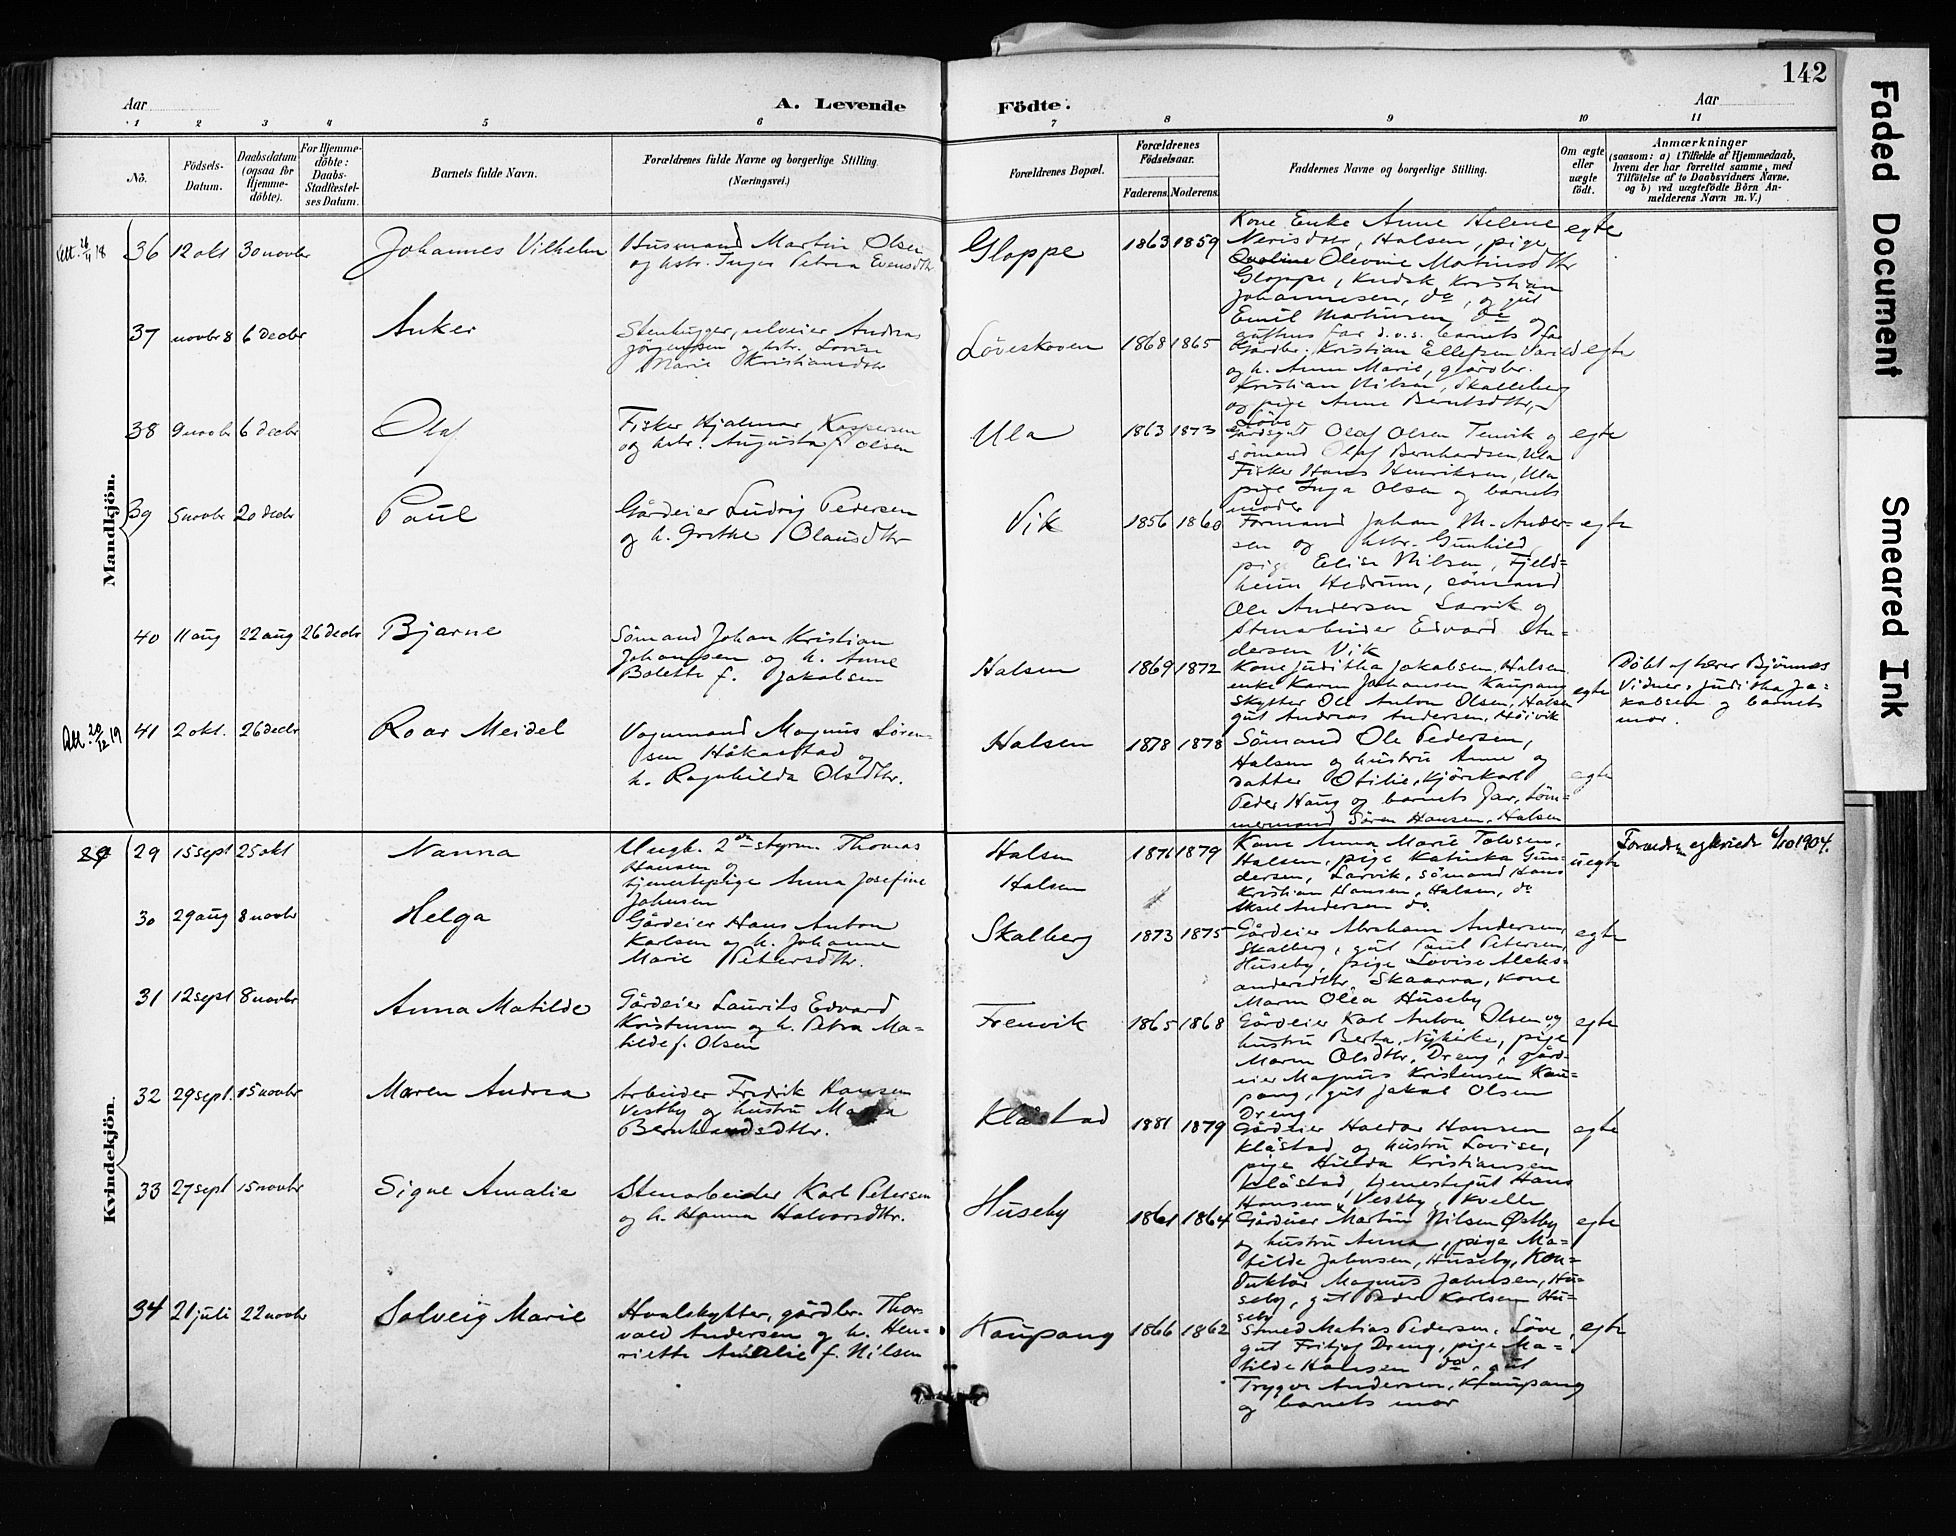 142
Aar
A. Levende
Födte.
Aar
1 2 3 4 5 6 7 8 9 10 11
Nö.
Födsels-
Datum.
Daabsdatum
(ogsaa for
Hjemme-
döbte).
For Hjemme-
döbte:
Daabs-
Stadfæstel-
ses Datum.
Barnets fulde Navn.
Forældrenes fulde Navne og borgerlige Stilling.
(Næringsvei.)
Forældrenes Bopæl.
Forældrenes
Födselsaar.
Faderens. Moderens.
Faddernes Navne og borgerlige Stilling.
Om ægte
eller
uægte
födt.
Anmærkninger
(saasom: a) i Tilfælde af Hjemmedaab,
hvem der har forrettet samme, med
Tilföielse af to Daabsvidners Navne,
og b) ved uægtefödte Börn An-
melderens Navn m. V.)
Mandkjön.
36 12 okt 30 novbr
Johannes Vilhelm
Husmand Martin Olsen
og hstr. Inger Petrea Evensdtr
Gloppe
1863 1859
Kone Enke Anne Helene
Nerisdtr, Halsen, pige
Olevine Matinsdtr
Gloppe, Kudsk Kristian
Johannesen, do, og gut
Emil Martinsen do og
egte
37 novbr 8 6 decbr
Anker
Stenhugger, selveier Andreas
Jörgensen og hstr. Lovise
Marie Kristiansdtr
Löveskoven
1868 1865
Gårdbr. Kristian Ellefsen Varild
og h. Anne Marie, gårdbr.
Kristian Nilsen, Skalleberg
og pige Anne Berntsdtr,
Löve
egte
38 9 novbr 6 decbr
Olaf
Fisker Hjalmar Kaspersen
og hstr. Augusta f. Olsen
Ula
1863 1873
Gårdsgut Olaf Olsen Tenvik og
sömand Olaf Bernhardsen, Ula
Fisker Hans Henriksen, Ula
pige Inga Olsen og barnets
moder
egte
39 5 novbr 20 decbr
Paul
Gårdeier Ludvig Pedersen
og h. Grethe Olausdtr
Vik
1856 1860
Formand Johan M. Ander-
sen og hstr. Gunhild
pige Elise Nilsen, Fjeld-
heim Hedrum, sömand
Ole Andersen Larvik og
Stenarbeider Edvard An-
dersen Vik
egte
40 11 aug 22 aug 26 decbr
Bjarne
Sömand Johan Kristian
Johannsen og h. Anne
Bolette f. Jakobsen
Halsen
1869 1872
Kone Juditha Jakobsen, Halsen
enke Karen Johansen Kaupang
Skytter Ole Anton Olsen, Halsen
gut Andreas Andersen, Höivik
egte
Döbt af lærer Bjönnes
Vidner: Juditha Ja-
kobsen og barnets
mor.
41 2 okt. 26 decbr
Roar Meidel
Vognmand Magnus Sören-
sen Håkastad og
h. Ragnhilda Olsdtr.
Halsen
1878 1878
Sömand Ole Pedersen,
Halsen og hustru Anne og
datter Otilie, Kjörekarl
Peder Haug og barnets far, töm-
mermand Sören Hansen, Halsen
egte
Kvindekjön.
29 15 sept 25 okt
Nanna
Ungk. 2den styrm. Thomas
Hansen og
tjenestepige Anna Josefine
Johnsen
Halsen
Halsen
1876 1879
Kone Anna Marie Tobiesen,
Halsen, pige Katinka Gun-
dersen, Larvik, sömand Hans
Kristian Hansen, Halsen, do
Aksel Andersen do.
uegte
6/10 1904.
30 29 aug 8 novbr
Helga
Gårdeier Hans Anton
Karlsen og h. Johanne
Marie Petersdtr.
Skalberg
1873 1875
Gårdeier Abraham Andersen,
Skalberg, gut Paul Petersen,
Huseby, pige Lovise Aleks-
andersdtr, Skaarra, Kone
Maren Olea Huseby
egte
31 12 sept 8 novbr
Anna Matilde
Gårdeier Laurits Edvard
Kristensen og h. Petra Ma-
tilde f. Olsen
Frenvik
1865 1868
Gårdeier Karl Anton Olsen og
hustru Berta, Nykirke, pige
Maren Olsdtr, Dreng, gård-
eier Magnus Kristensen Kau-
pang, gut Jakob Olsen
Dreng
egte
32 29 sept. 15 novbr
Maren Andrea
Arbeider Fredrik Hansen
Vestby og hustru
Bernhardsdtr.
Klåstad
1881 1879
Gårdeier Haldor Hansen
Klåstad og hustru Lovise,
pige Hilda Kristiansen
Klåstad, tjenestegut Hans
Hansen, Vestby, Kvelle
egte
33 27 sept 15 novbr
Signe Amalie
Stenarbeider Karl Petersen
og h. Hanna Halvorsdtr.
Huseby
1861 1864
Gårdeier Martin Nilsen Østby
og hustru Anna, pige Ma-
tilde Johnsen, Huseby, Kon-
duktör Magnus Johnsen, Hu-
seby, gut Peder Karlsen Hu-
seby
egte
34 21 juli 22 novbr
Solveig Marie
Hvalskytter, gårdbr. Thor-
vald Andersen og h. Hen-
riette Amalie f. Nilsen
Kaupang
1866 1862
Smed Matias Pedersen, Löve,
gut Fritjof Dreng, pige Ma-
tilde Hansen do, gut
Trygve Andersen, Kaupang
og barnets mor
egte
Faded Document
Smeared Ink